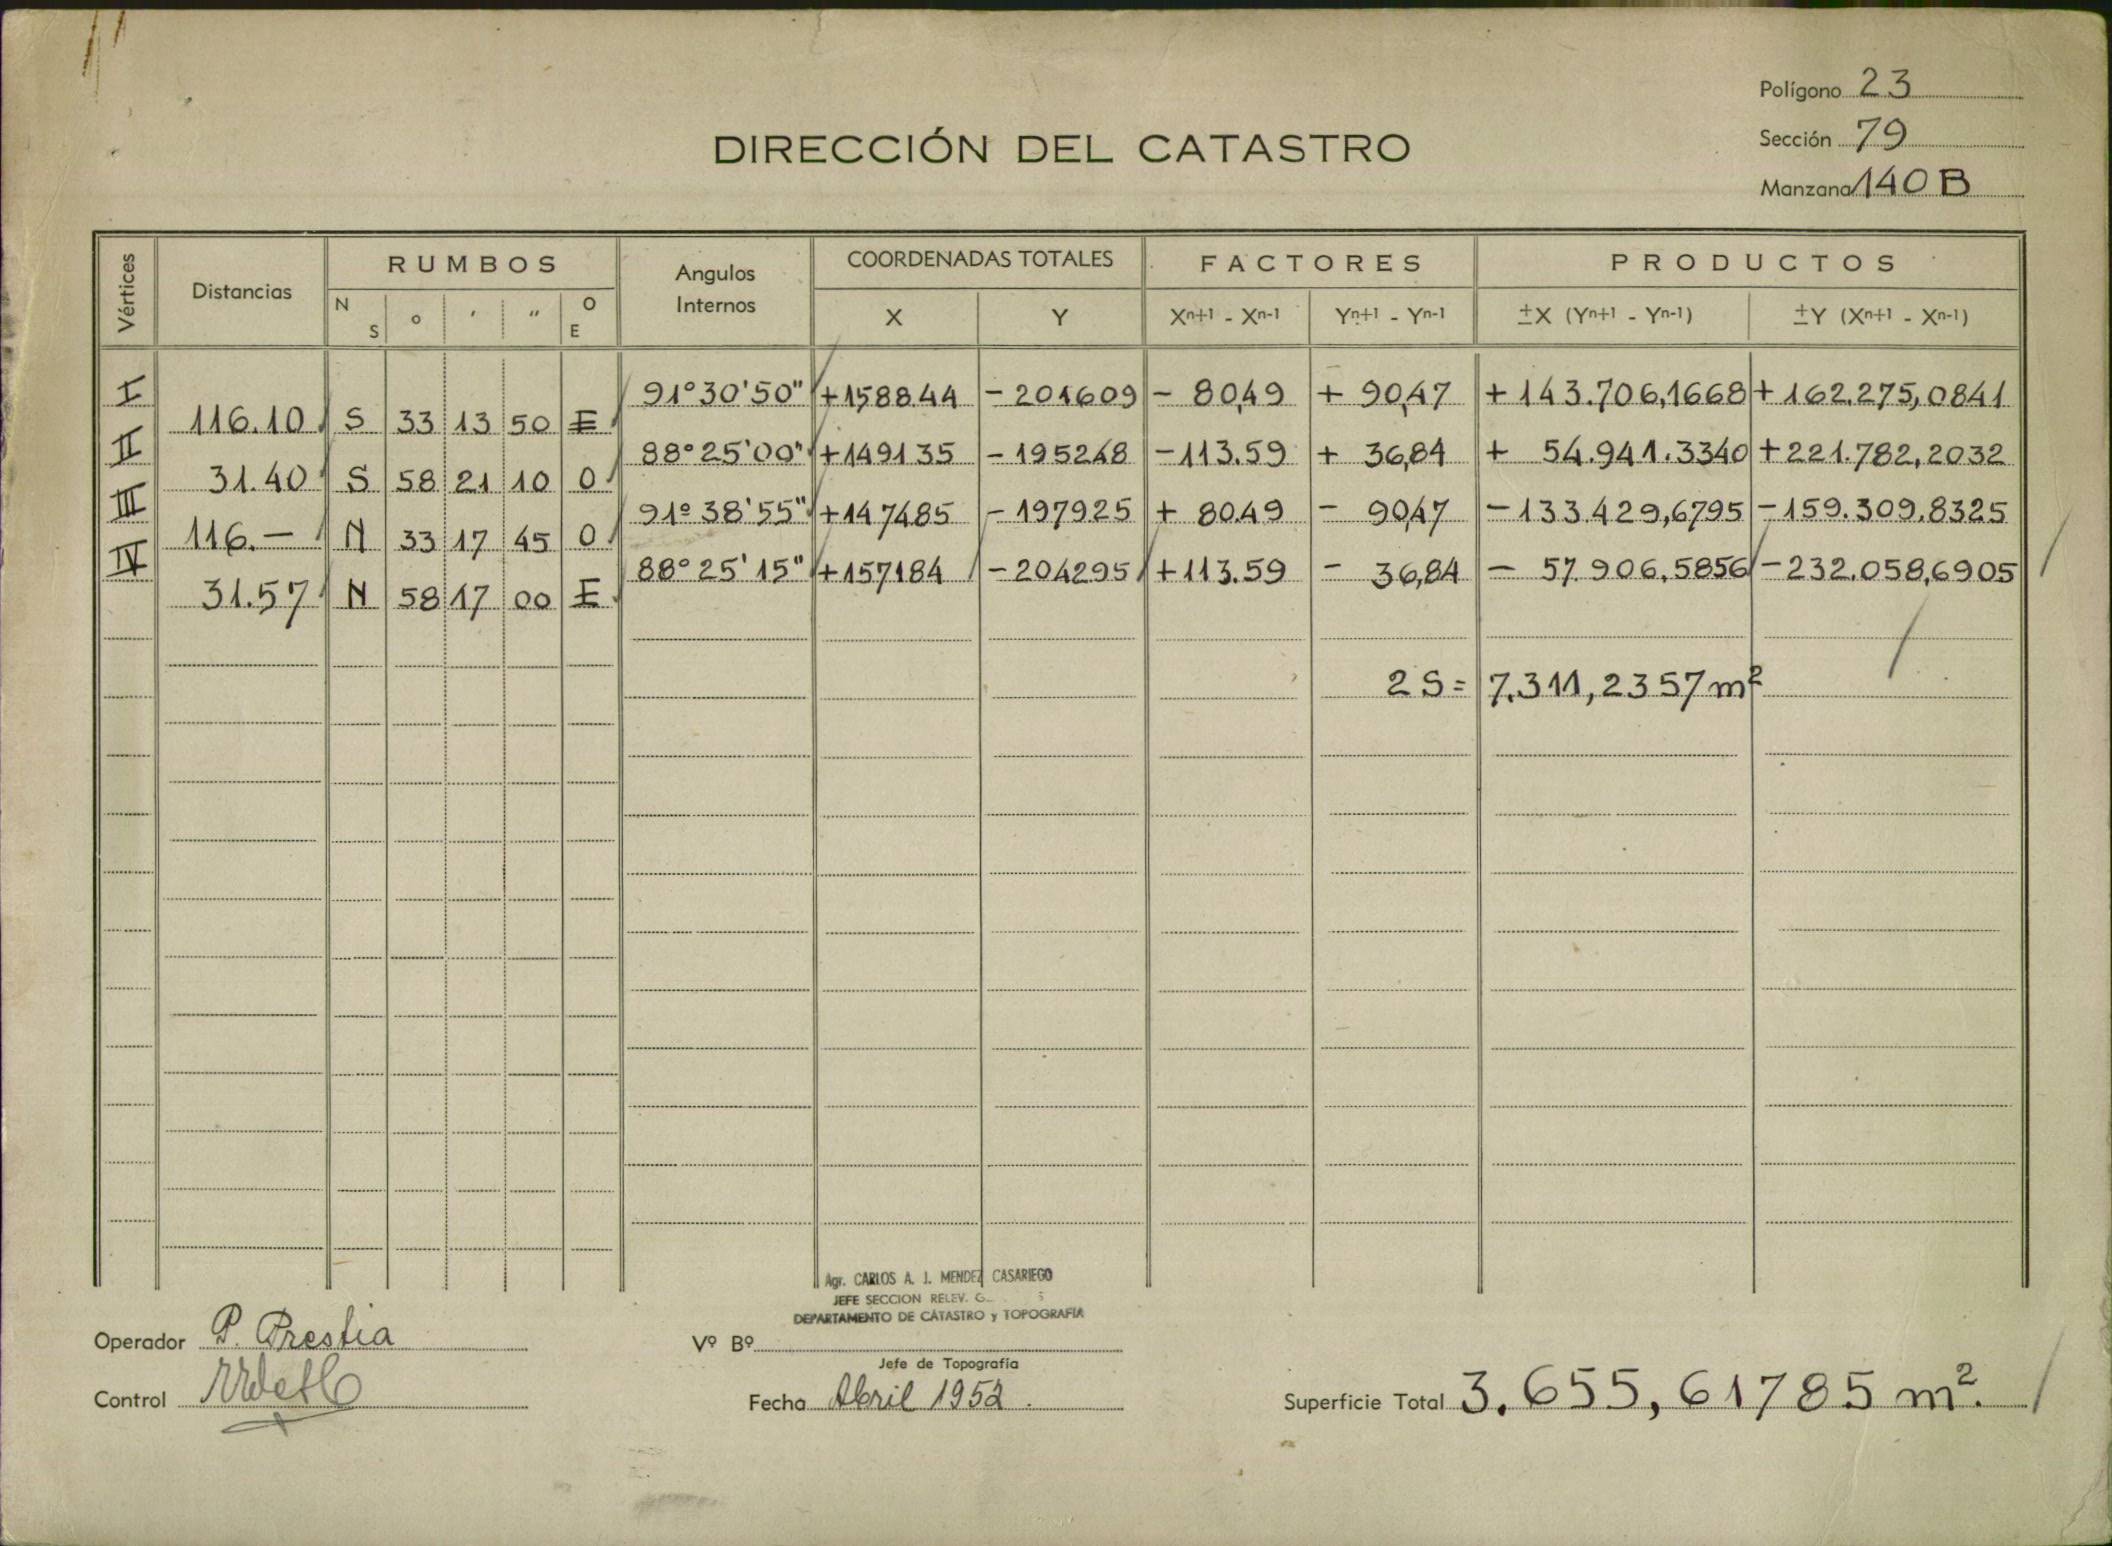 Polígono 23
Sección 79
Manzana 140 B
DIRECCIÓN DEL CATASTRO
Vértices Distancias RUMBOS Angulos Internos COORDENADAS TOTALES FACTORES PRODUCTOS
N S ° ' " O E X Y Xn+1 - Xn-1 Yn+1 - Yn-1 ±X (Yn+1 - Yn-1) ±Y (Xn+1 - Xn-1)
I 91°30'50" +158844 -201609 - 80,49 + 90,47 +143.706,1668 +162.275,0841
116.10 S 33 13 50 E
II 88°25'00" +149135 -195248 -113.59 + 36,84 + 54.941.3340 +221.782,2032
31.40 S 58 21 10 O
III 91°38'55" +147485 -197925 + 80.49 - 90,47 -133.429,6795 -159.309.8325
116.- N 33 17 45 O
IV 88°25'15" +157184 -204295 +113.59 - 36,84 - 57.906,5856 -232.058,6905
31.57 N 58 17 00 E
2 S = 7.311,2357 m²
Agr. CARLOS A. J. MENDEZ CASARIEGO
JEFE SECCION RELEV.
DEPARTAMENTO DE CATASTRO y TOPOGRAFIA
Operador P. Prestia
Vº Bº
Jefe de Topografía
Control
Fecha Abril 1952.
Superficie Total 3.655,61785 m².